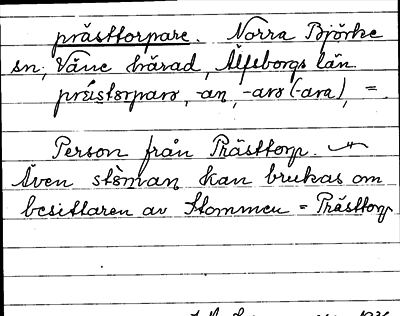 prästtorpare. Norra Björke
sn, Väne härad, Älfsborgs län.
prä́stårparə, -an, -arə (-ara), =.
Person från Prästtorp.
Även stòman kan brukas om
besittaren av Stommen = Prästtorp